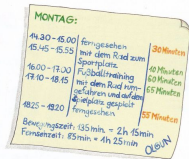 MONTAG:
14.30-15.00 ferngesehen 30 Minuten
15.45-15.55 mit dem Rad zum
Sportplatz 10 Minuten
16.00-17.00 Fußballtraining 60 Minuten
17.10-18.15 mit dem Rad rum- 65 Minuten
gefahren und auf dem
Spielplatz gespielt
18.25-19.20 ferngesehen 55 Minuten
Bewegungszeit: 135 min. = 2h 15min
Fernsehzeit: 85min = 1h 25min
OLGUN